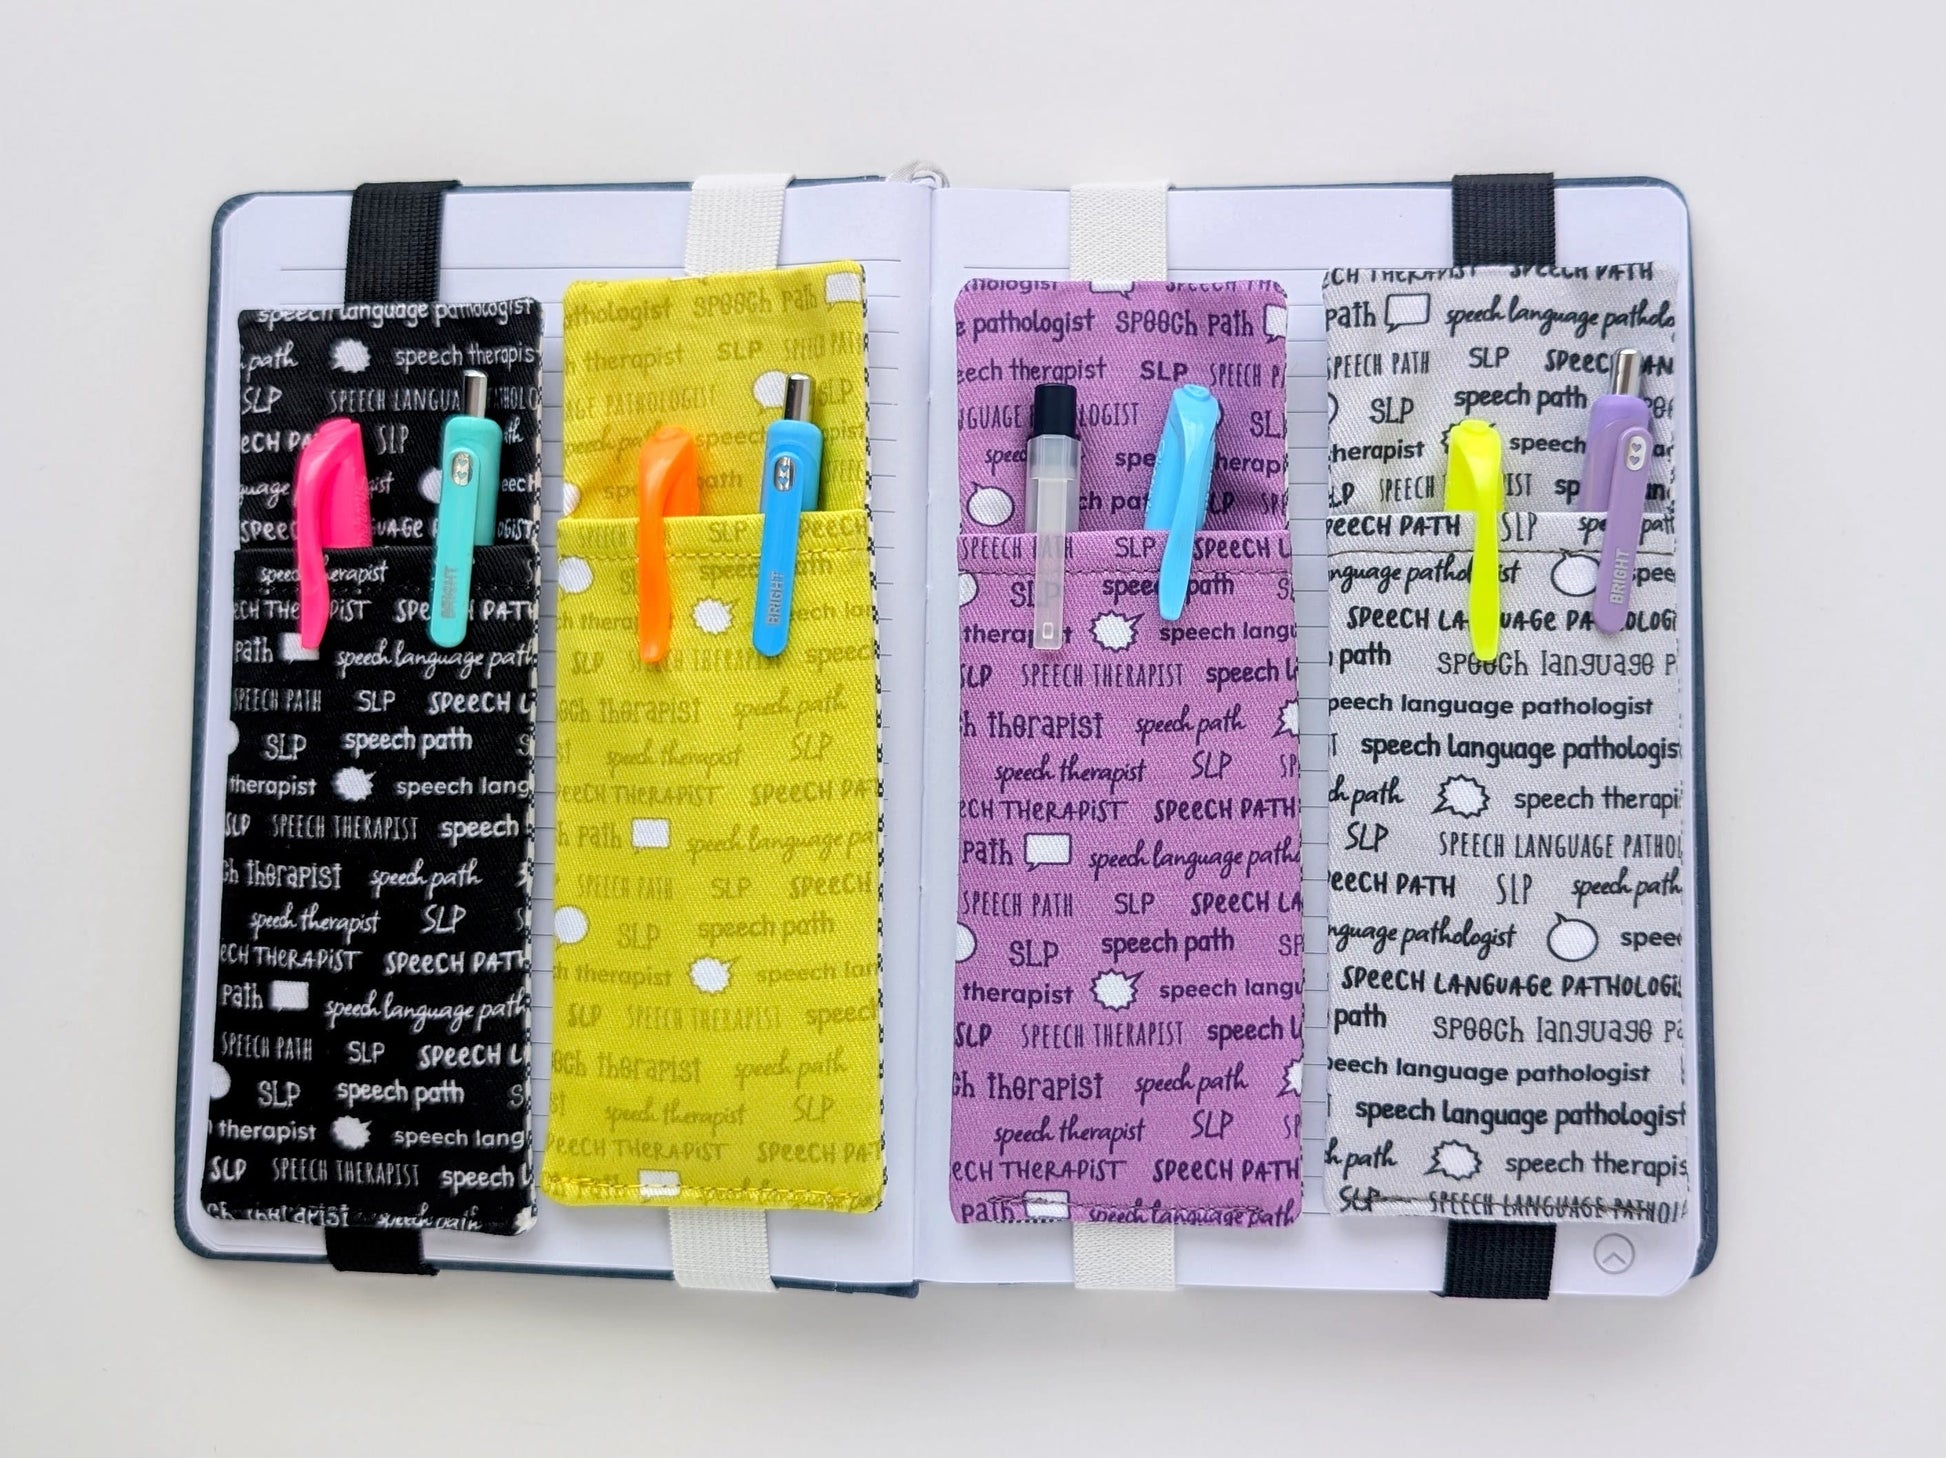 speech language pathologist
path speech therapis
SLP SPEECH LANGUA
SLP
speech therapist
ECH THERAPIST SPE PATH
path speech language path
SPEECH PATH SLP SPEECH L
SLP speech path S
therapist speech lang
SLP SPEECH THERAPIST speech
ch therapist speech path
speech therapist SLP
ECH THERAPIST SPEECH PATH
path speech language path
SPEECH PATH SLP SPEECH L
SLP speech path S
therapist speech lang
SLP SPEECH THERAPIST speech
ch therapist speech path
BRIGHT
thologist speech path
h therapist SLP SPEECH PATH
GE PATHOLOGIST SLP
SLP SPEECH
speech
ch therapist speech lan
SLP THERAPIST speech
ech therapist speech path
speech therapist SLP
PEECH THERAPIST SPEECH PA
h path speech language pa
SPEECH PATH SLP SPEECH
SLP speech path
h therapist speech lan
SLP SPEECH THERAPIST speech
ech therapist speech path
speech therapist SLP
PEECH THERAPIST SPEECH PAT
path speech language pa
BRIGHT
e pathologist speech path
eech therapist SLP SPEECH P
NGUAGE LOGIST SL
SPEECH PATH SLP SPEECH L
SLP speech path S
therapist speech langu
SLP SPEECH THERAPIST speech l
h therapist speech path
speech therapist SLP SP
ECH THERAPIST SPEECH PATH
path speech language path
SPEECH PATH SLP SPEECH LA
SLP speech path SP
therapist speech langu
SLP SPEECH THERAPIST speech l
ch therapist speech path
speech therapist SLP SP
ECH THERAPIST SPEECH PATH
path speech language path
ECH THERAPIST SPEECH PATH
path speech language patholo
SPEECH PATH SLP SPEECH AN
SLP speech path
therapist speech
SPEECH IST sp
PEECH PATH SLP spe path
nguage pathologist spee
SPEECH LANGUAGE PATHOLOGI
path speech language p
peech language pathologist
speech language pathologis
h path speech therapi
SLP SPEECH LANGUAGE PATHOL
PEECH PATH SLP speech path
nguage pathologist speec
SPEECH LANGUAGE PATHOLOGIS
path speech language pa
peech language pathologist
speech language pathologist
h path speech therapis
SLP SPEECH LANGUAGE PATHOL
BRIGHT